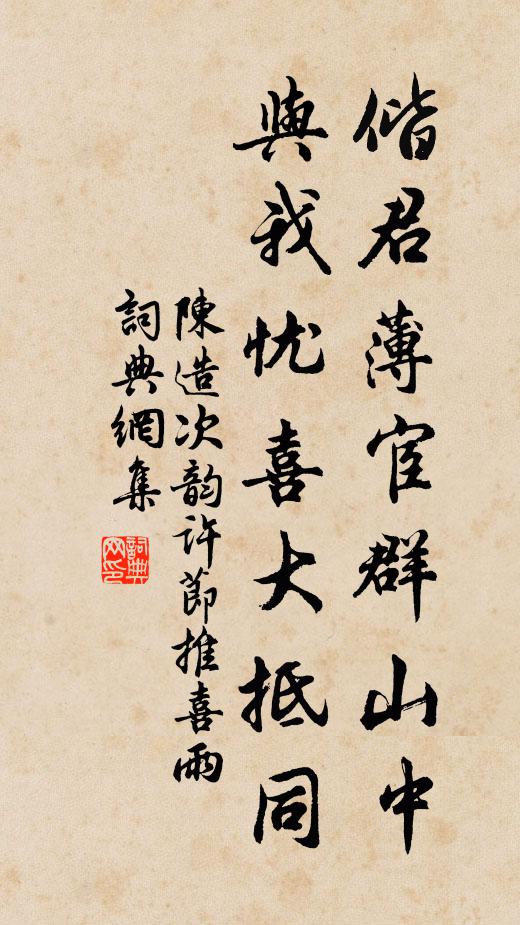 偕君薄宦群山中
與我忧喜大抵同
陳造次韵許節推喜雨
詞典網集
詞典网印